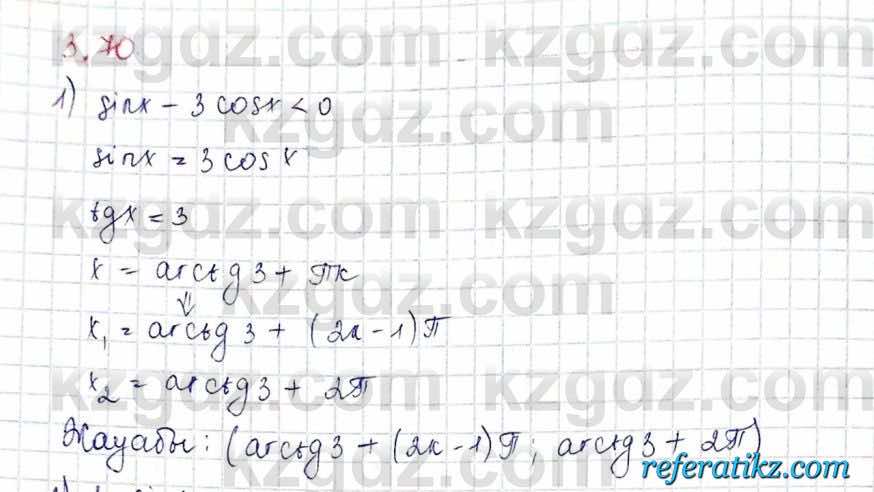 3.70
1) sinx - 3 cosx < 0
sinx = 3 cosx
tgx = 3
x = arctg 3 + πk
⇓
x₁ = arctg 3 + (2k - 1)π
x₂ = arctg 3 + 2π
Жауабы: (arctg 3 + (2k - 1)π; arctg 3 + 2π)
referatikz.com
kzgdz.com kzgdz.com
kzgdz.com
kzgdz.com kzgdz.com
kzgdz.com
kzgdz.com kzgdz.com